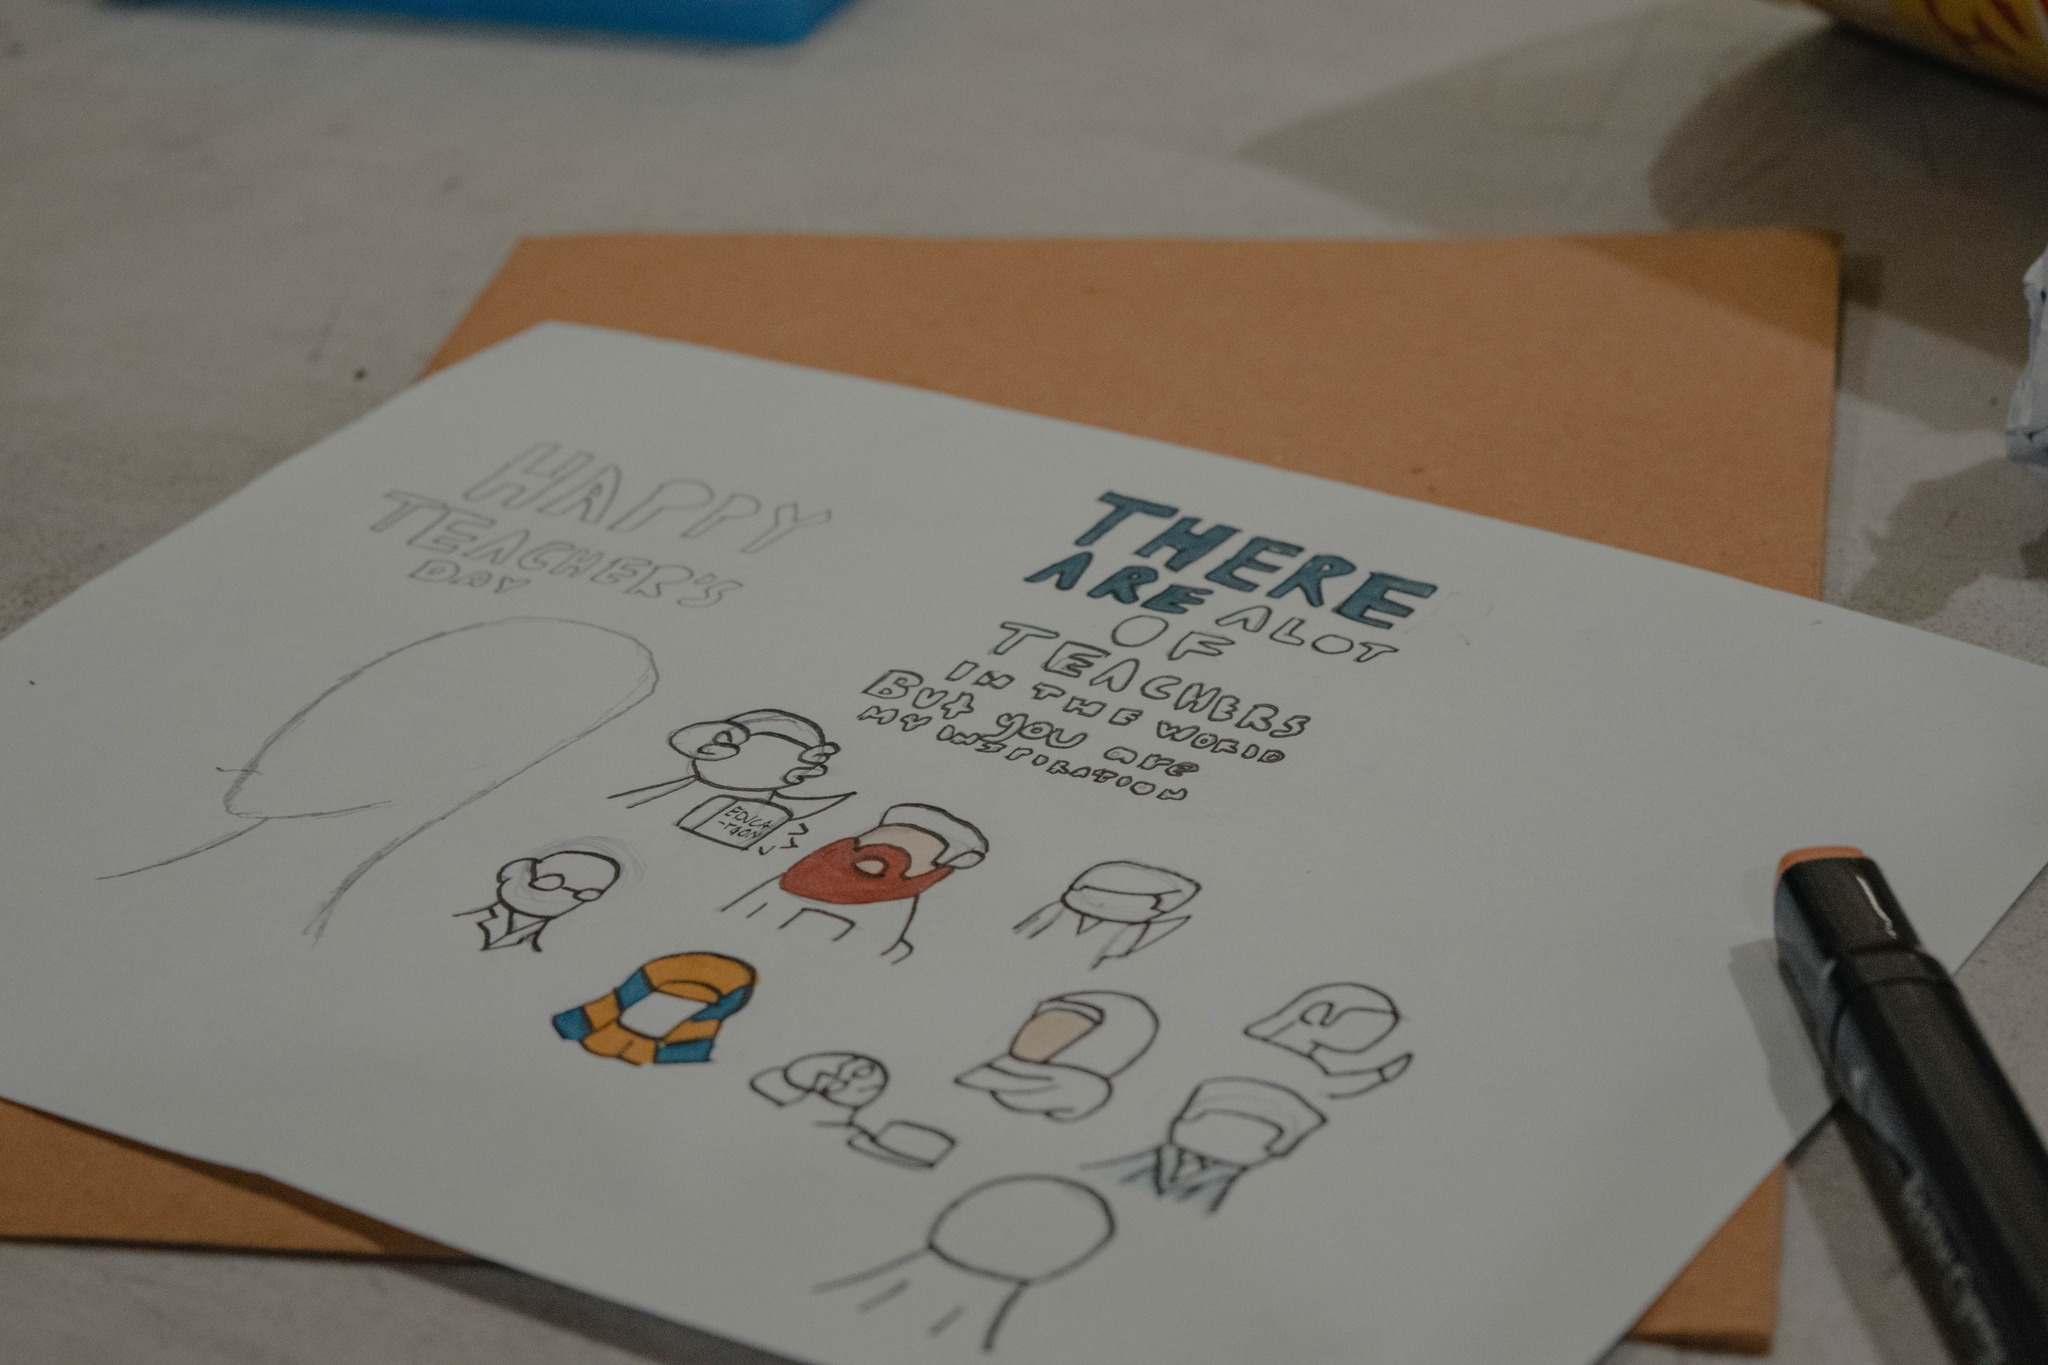 HAPPY
TEACHER'S
DAY
THERE
ARE A LOT
OF
TEACHERS
IN THE WORLD
But you are
MY INSPIRATION
EDUCA
-TION